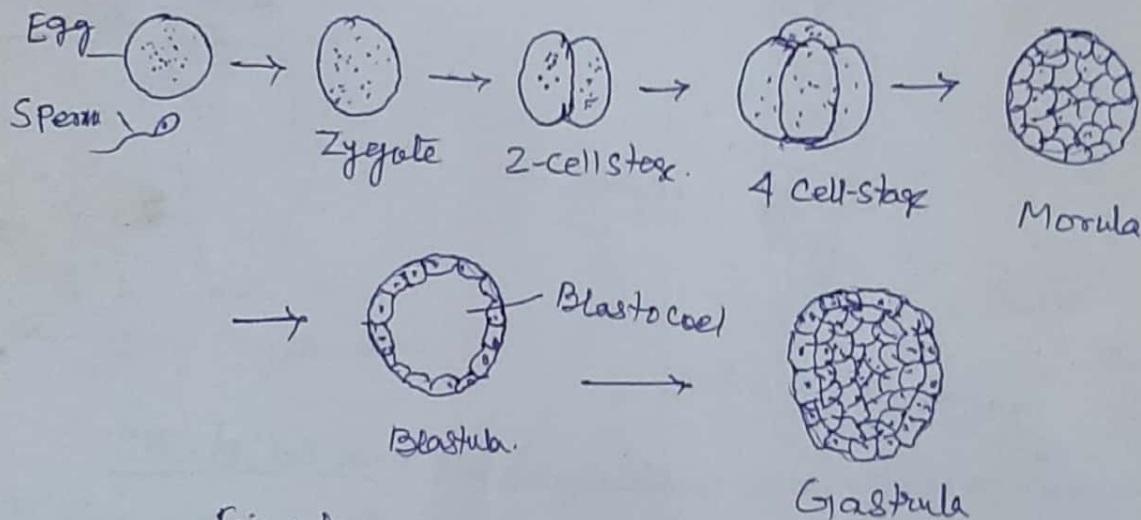 Egg
Sperm
Zygote
2-cell stage.
4 cell-stage
Morula
Blastocoel
Blastula.
Gastrula